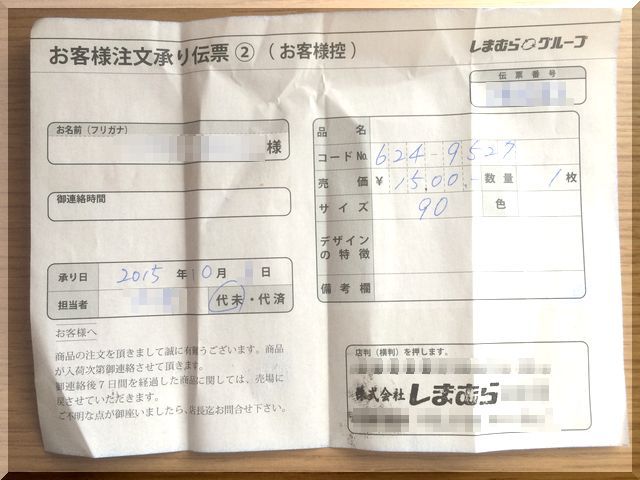 お客様注文承り伝票 ② （お客様控）
しまむらグループ
伝票番号
お名前（フリガナ）
様
御連絡時間
品名
コードNo. 624-9527
売価 ¥1500.- 数量 1枚
サイズ 90 色
デザインの特徴
備考欄
承り日 2015年10月 日
担当者 代未・代済
お客様へ
商品の注文を頂きまして誠に有難うございます。商品
が入荷次第御連絡させて頂きます。
御連絡後7日間を経過した商品に関しては、売場に
戻させていただきます。
ご不明な点が御座いましたら、店長迄お問合せ下さい。
店判（横判）を押します。
株式会社しまむら